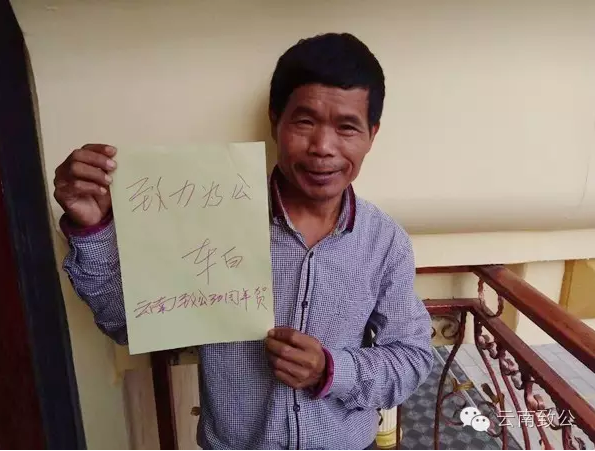 致力为公
车白
云南致公30周年贺
云南致公